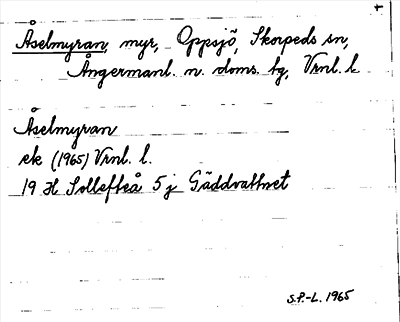 Åselmyran, myr, Oppsjö, Skorpeds sn,
Ångermanl. n. doms. tg, Vrnl. l.
Åselmyran
ek (1965) Vrnl. l.
19 H Sollefteå 5 j Gäddvattnet
S.P.-L. 1965